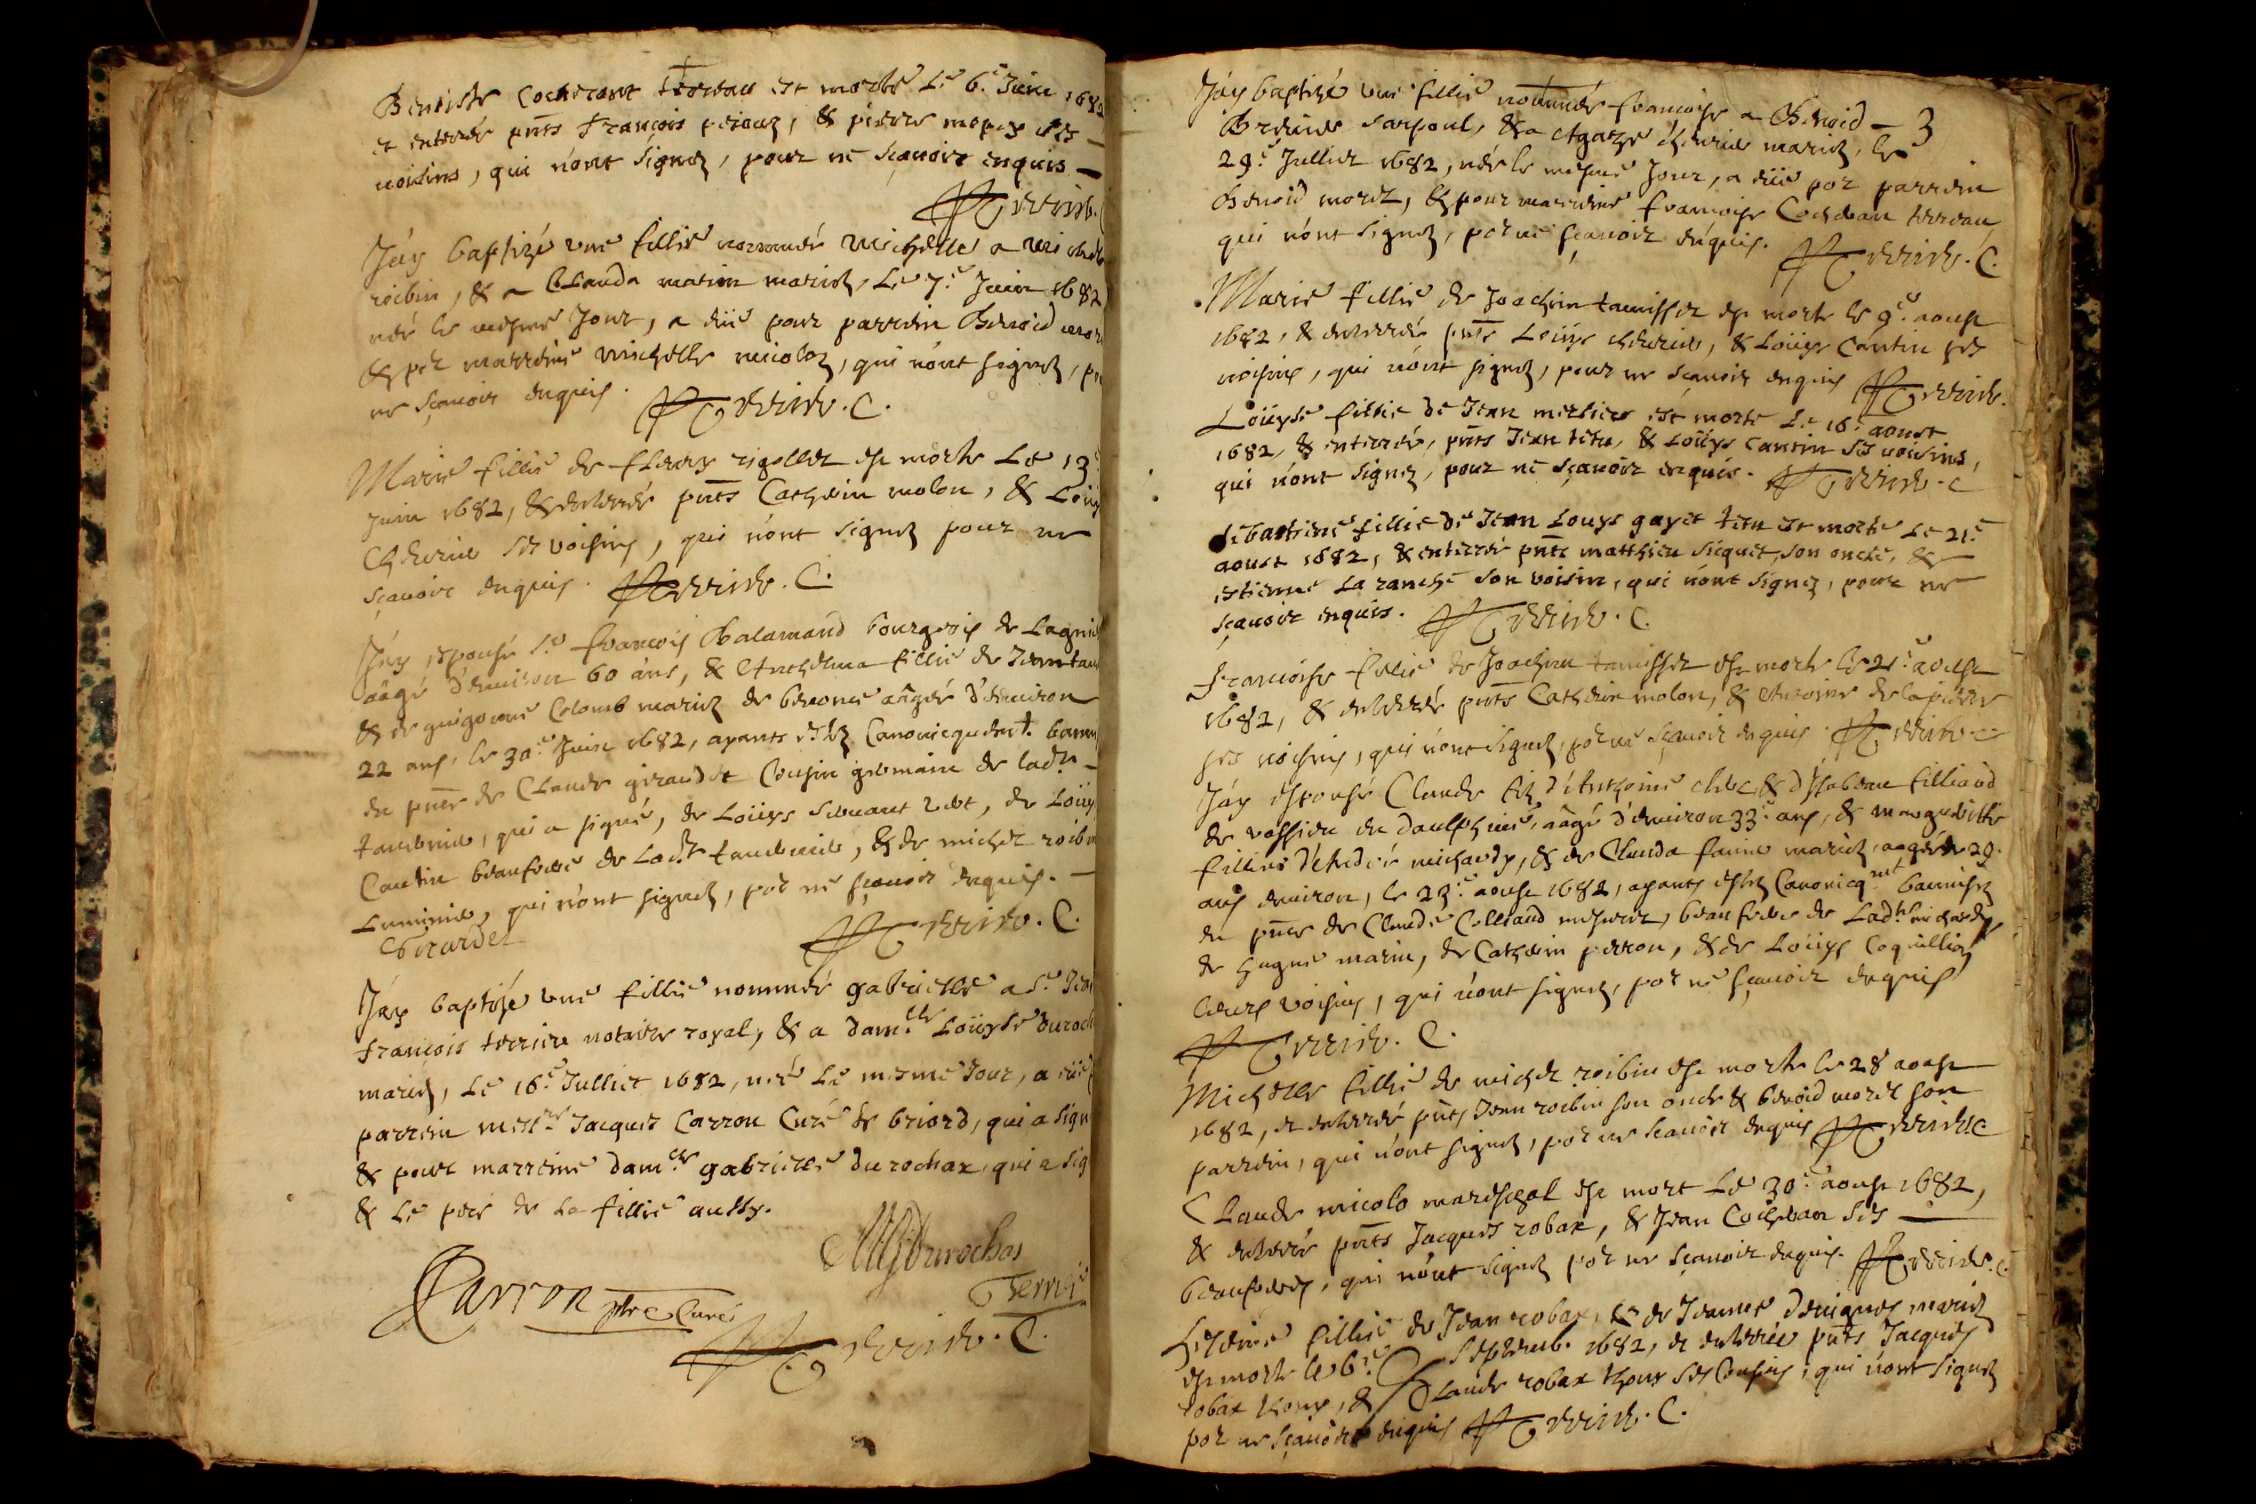 Benoiste Cochevant terreau est morte Le 6.e Juin 1682
et enterrée pnts François perouz, & pierre
uoisins, qui n'ont signez, pour ne sçauoir enquis
Terrier. C.
J'ay baptizé vne fillie nommée Michelle a michel
roibin, & a Clauda marin mariez, Le 7.e Juin 1682
née le mesme Jour, a eüe pour parrein Benoid
& por marreine Michelle micoloz, qui n'ont signez,
ne sçauoir enquis.
Terrier. C.
Marie fillie de fleury rigollet est morte Le 13.e
juin 1682, & enterrée pnts Catherin molon, & Loüys
Cheurier ses voisins, qui n'ont signez pour ne
sçauoir enquis. Terrier. C.
J'ay espousé Sr. François Balamand bourgeois de Lagnieu
aâgé d'enuiron 60 ans, & Anthelma fillie de Jean
& de guigonne Colomb mariez de benonce aâgée d'enuiron
22 ans, le 30.e Juin 1682, ayants estez Canonicquement
en pnce de Claude girardet Cousin germain de ladte
qui a signé, de Loüys de Loüys
Cantin beaufrere de Ladte & de michel roibin
qui n'ont signez, por ne sçauoir enquis.
Girardet
Terrier. C.
J'ay baptisé vne fillie nommée gabrielle a Sr. Jean
François terrier notaire royal, & a damlle Loüyse duroch
mariez, Le 16.e Julliet 1682, née Le mesme Jour, a eüe
parrein messre Jacques Carron Curé de briord, qui a sign
& pour marreine damlle gabrielle du rochax, qui a sig
& Le pere de La fillie aussy.
Durochas
Carron ptre Curé
Terrier
Terrier. C.
3
J'ay baptizé vne fillie nommée francoise a Benoid
Breuue sarpoul, & a Agathe cheurier mariez, le
29.e Julliet 1682, née le mesme Jour, a eüe por parrein
Benoid morel, & pour marreine francoise Cochevan terreau
qui n'ont signez, por ne sçauoir enquis. Terrier. C.
Marie fillie de Joachim tamisset est morte le 9.e aoust
1682, & enterrée pnts Loüys cheurier, & Loüys Cantin ses
uoisins, qui n'ont signez, pour ne sçauoir enquis Terrier.
Loüyse fillie de Jean mertier est morte Le 16.e aoust
1682, & enterrée, pnts Jean tetu, & Loüys Cantin Ses uoisins,
qui n'ont signez, pour ne sçauoir enquis. Terrier. C
Sebastiene fillie de Jean Louys gayet tetu est morte Le 21.e
aoust 1682, & enterrée pnts matthieu sicquet, son oncle, &
estienne La ranche son voisin, qui n'ont signez, pour ne
sçauoir enquis. Terrier. C.
francoise fillie de Joachim tamisset est morte le 21.e aoust
1682, & enterrée pnts Catherin molon, & Anthoine de la pierre
ses uoisins, qui n'ont signez, por ne sçauoir enquis. Terrier. C
J'ay espousé Claude filz d'Anthoine & d'ysabeau filliand
de vassieu en daulphiné, aâgé d'enuiron 33.e ans, & margueritte
fillie d'André michaudy, & de Clauda mariez, aagée de 29.
ans enuiron, le 23.e aoust 1682, ayants estez Canonicqmt bannisez
en pnce de Claude Colliand beaufrere de Ladte michaudy
de hugue marin, de Catherin perron, & de Loüys Coquillion
Leurs voisins, qui n'ont signez, por ne sçauoir enquis
Terrier. C.
Michelle fillie de michel roibin est morte le 28 aoust
1682, et enterrée pnts Jean roibin son oncle & benoid morel son
parrein, qui n'ont signez, por ne sçauoir enquis Terrier C
Claude micolo mareschal est mort Le 30.e aoust 1682,
& enterré pnts Jacques robax, & Jean Cochevan Ses
beaufreres, qui n'ont signez por ne sçauoir enquis. Terrier. C.
Heleine fillie de Jean robax, & de Jeanne mariez
est morte le 6.e septemb. 1682, et enterrée pnts Jacques
robax & Claude robax ses Cousins, qui n'ont signez
por ne sçauoir enquis Terrier. C.